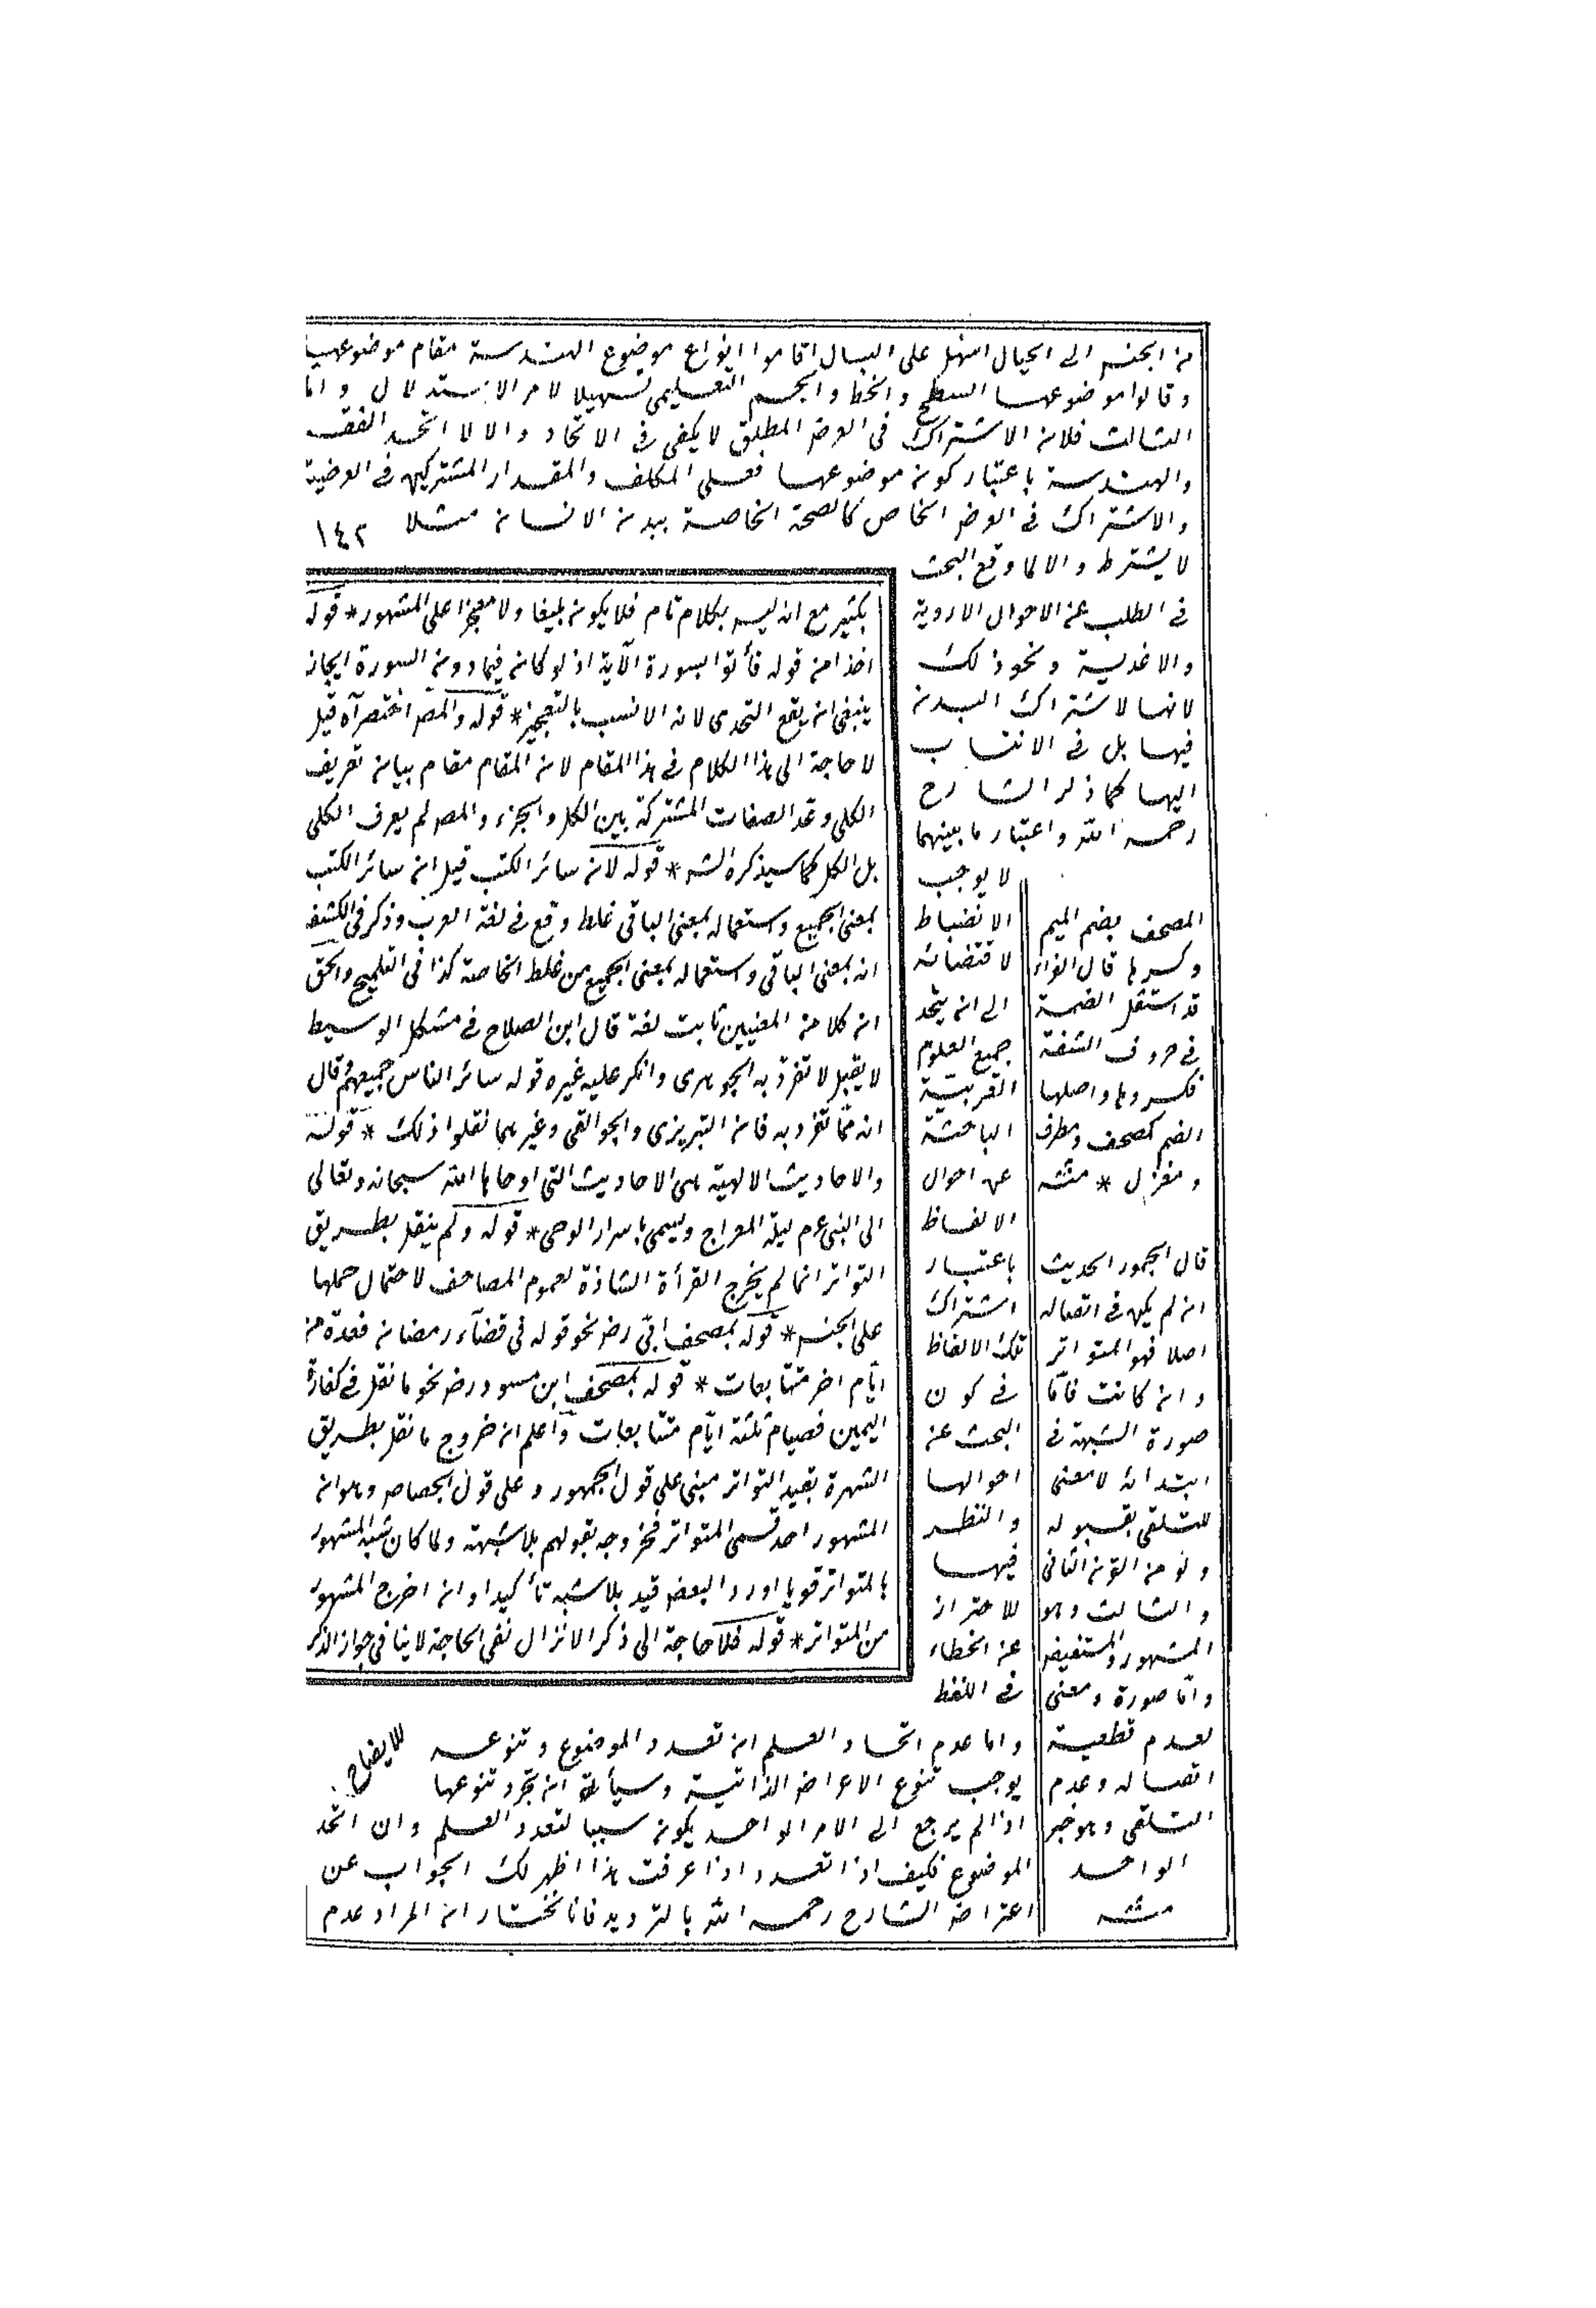 من الجنس الى الخيال اسهل على البال اقاموا انواع موضوع الهندسة مقام موضوعها
وقالوا موضوعها السطح والخط والجسم التعليمى تسهيلا لامر الاستدلال واما
الثالث فلان الاشتراك فى العرض المطلق لا يكفى فى الاتحاد والا لاتحد الفقه
والهندسة باعتبار كون موضوعهما فعلى المكلف والمقدار المشتركين فى العرضية
والاشتراك فى العرض الخاص كالصحة الخاصة ببدن الانسان مثلا
١٤٢
لا يشترط والا لما وقع البحث
فى الطلب عن الاحوال الادوية
والاغذية ونحو ذلك
لانها لاشتراك البدن
فيها بل فى الانتساب
اليها كما ذكر الشارح
رحمه الله واعتبار ما بينهما
لا يوجب
الانضباط
لاقتضائه
الى ان يتحد
جميع العلوم
العربية
الباحثة
عن احوال
الالفاظ
باعتبار
اشتراك
تلك الالفاظ
فى كون
البحث عن
احوالها
والنظر
فيها
للاحتراز
عن الخطاء
فى اللفظ
واما عدم اتحاد العلم ان تعدد الموضوع وتنوعه
يوجب تنوع الاعراض الذاتية وسيأتى ان مجرد تنوعها
اذا لم يرجع الى الامر الواحد يكون سببا لتعدد العلم وان اتحد
الموضوع فكيف اذا تعدد اذا عرفت هذا اظهر لك الجواب عن
اعتراض الشارح رحمه الله بالترديد فانا نختار ان المراد عدم
بكثير مع انه ليس بكلام تام فلا يكون بليغا ولا معجزا على المشهور * قوله
اخذا من قوله فأتوا بسورة الآية اذ لو كان فيما دون السورة ايجاز
ينبغى ان يقع التحدى لانه الانسب بالتعجيز * قوله والمص اختصر آه قيل
لا حاجة الى هذا الكلام فى هذا المقام لان المقام مقام بيان تعريف
الكلى وعد الصفات المشتركة بين الكل والجزء والمص لم يعرف الكلى
بل الكل كما سيذكره الش * قوله لان سائر الكتب قيل ان سائر الكتب
بمعنى الجميع واستعماله بمعنى الباقى غلط وقع فى لغة العرب وذكر فى الكشف
انه بمعنى الباقى واستعماله بمعنى الجميع من غلط الخاصة كذا فى التلميح والحق
ان كلا من المعنيين ثابت لغة قال ابن الصلاح فى مشكل الوسيط
لا يقبل لا تفرد به الجوهرى وانكر عليه غيره قوله سائر الناس جميعهم وقال
انه مما تفرد به فان التبريزى والجوالقى وغيرهما نقلوا ذلك * قوله
والاحاديث الالهية هى الاحاديث التى اوحاها الله سبحانه وتعالى
الى النبى عم ليلة المعراج ويسمى باسرار الوحى * قوله ولم ينقل بطريق
التواتر انما لم يخرج القرأة الشاذة لعموم المصاحف لاحتمال حملها
على الجنس * قوله بمصحف ابىّ رض نحو قوله فى قضآء رمضان فعدة من
ايّام اخر متتابعات * قوله بمصحف ابن مسعود رض نحو ما نقل فى كفارة
اليمين فصيام ثلثة ايّام متتابعات واعلم ان خروج ما نقل بطريق
الشهرة بقيد التواتر مبنى على قول الجمهور وعلى قول الجصاص وهو ان
المشهور احد قسمى المتواتر فخروجه بقولهم بلا شبهة ولما كان شبه المشهور
بالمتواتر قويا اورد البعض قيد بلا شبهة تأكيدا وان اخرج المشهور
من المتواتر * قوله فلا حاجة الى ذكر الانزال نفى الحاجة لا ينافى جواز الذكر
للايضاح
المصحف بضم الميم
وكسرها قال الفراء
قد استثقل الضمة
فى حروف الشفة
فكسروها واصلها
الضم كمصحف ومطرف
ومغزل * منه
قال الجمهور الحديث
ان لم يكن فى اتصاله
اصلا فهو المتواتر
وان كانت فاما
صورة الشبهة فى
ابتدائه لا معنى
للتلقى بقبوله
ولو من القرن الثانى
والثالث وهو
المشهور والمستفيض
واما صورة ومعنى
لعدم قطعية
اتصاله وعدم
التلقى وهو خبر
الواحد
منه